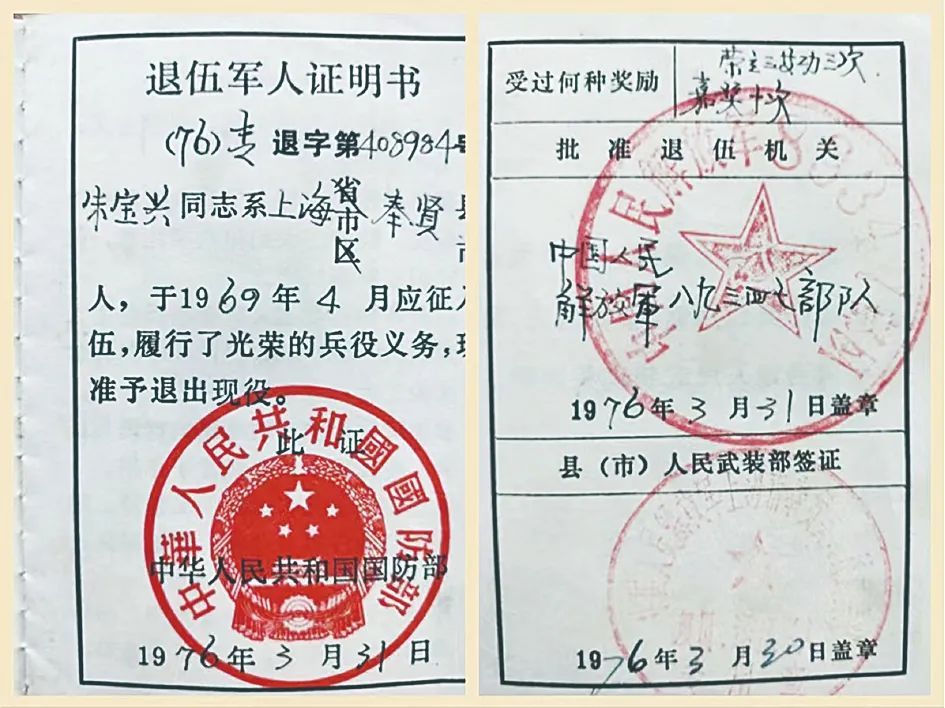 退伍军人证明书
(76)专 退字第408984号
朱宝兴同志系上海省市区奉贤县市
人，于1969年4月应征入
伍，履行了光荣的兵役义务，现
准予退出现役。
此 证
中华人民共和国国防部
1976年3月31日
中華人民共和國國防部
受过何种奖励
荣立三等功三次
嘉奖十次
批准退伍机关
中国人民
解放军八九三四七部队
中国人民解放军
1976年3月31日盖章
县（市）人民武装部签证
1976年3月30日盖章